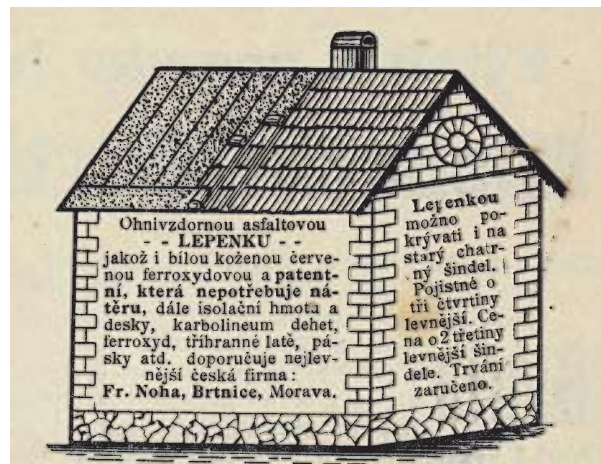 Ohnivzdornou asfaltovou
- - LEPENKU - -
jakož i bílou koženou červe-
nou ferroxydovou a patent-
ní, která nepotřebuje ná-
těru, dále isolační hmota a
desky, karbolineum dehet,
ferroxyd, tříhranné latě, pá-
sky atd. doporučuje nejlev-
nější česká firma:
Fr. Noha, Brtnice, Morava.
Lepenkou
možno po-
krývati i na
starý chatr-
ný šindel.
Pojistné o
tři čtvrtiny
levnější. Ce-
na o 2 třetiny
levnější šin-
dele. Trvání
zaručeno.